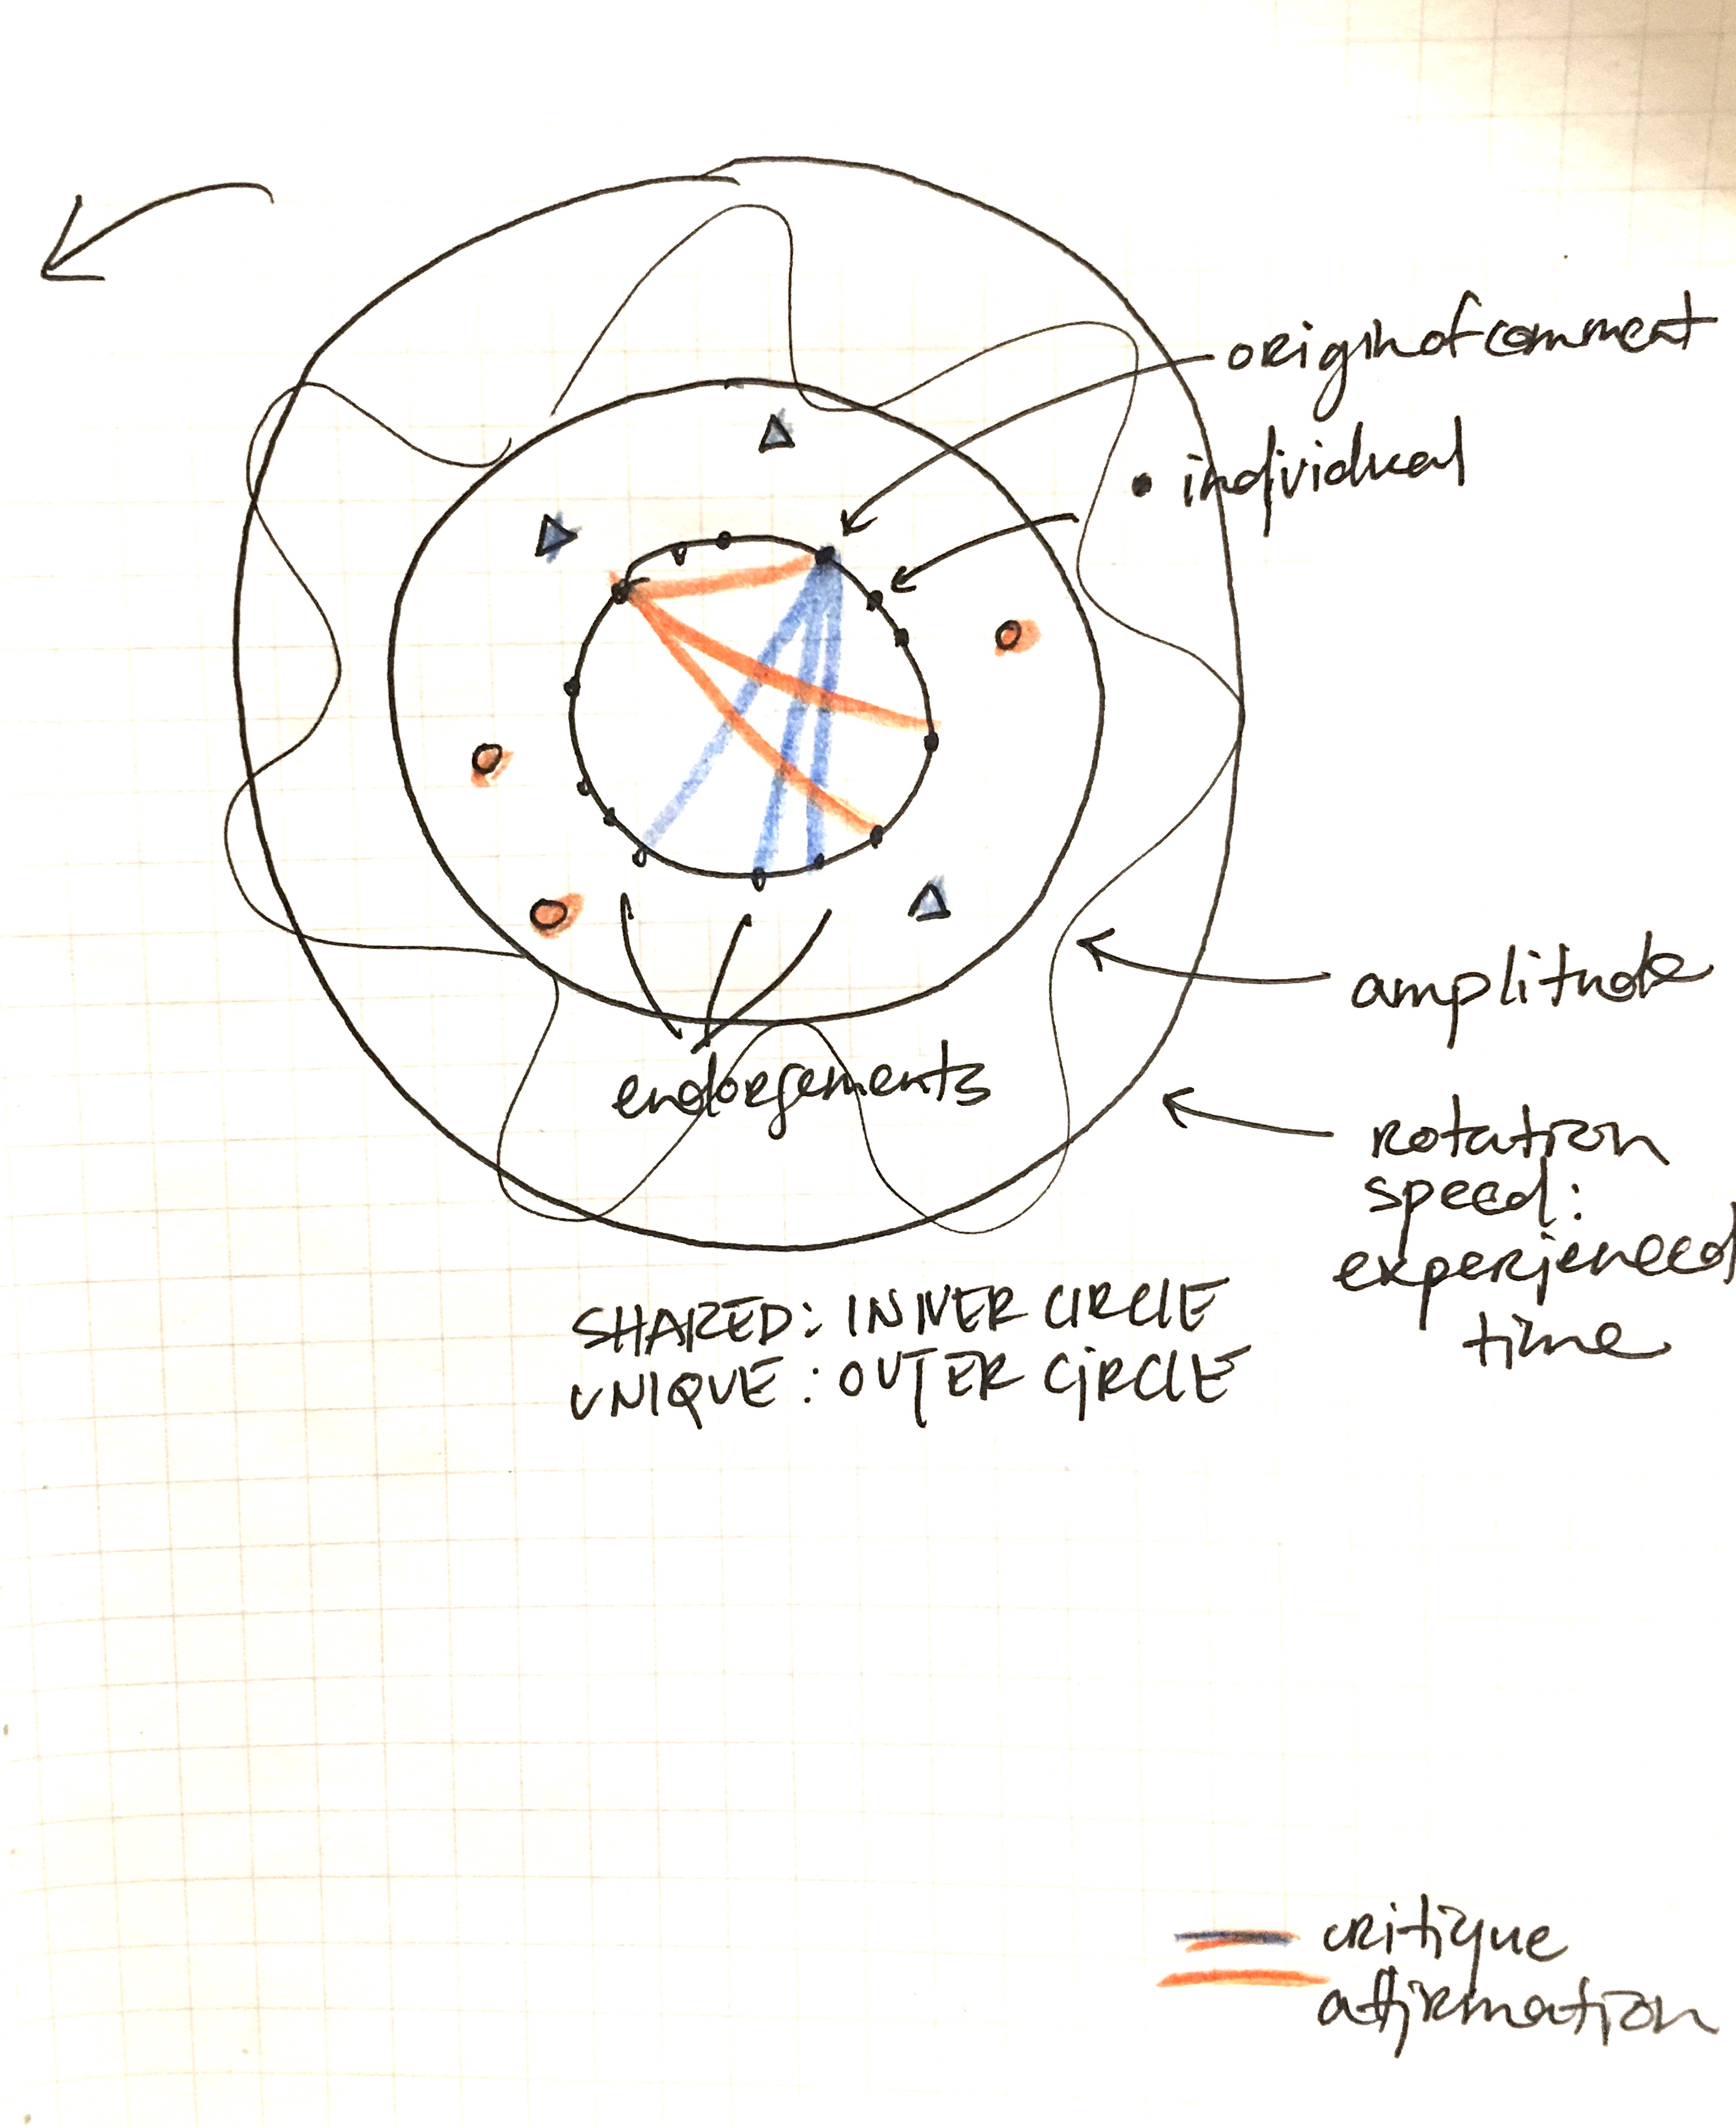 origin of comment
• individual
amplitude
endorsements
rotation
speed:
experienced
time
SHARED: INNER CIRCLE
UNIQUE: OUTER CIRCLE
critique
affirmation